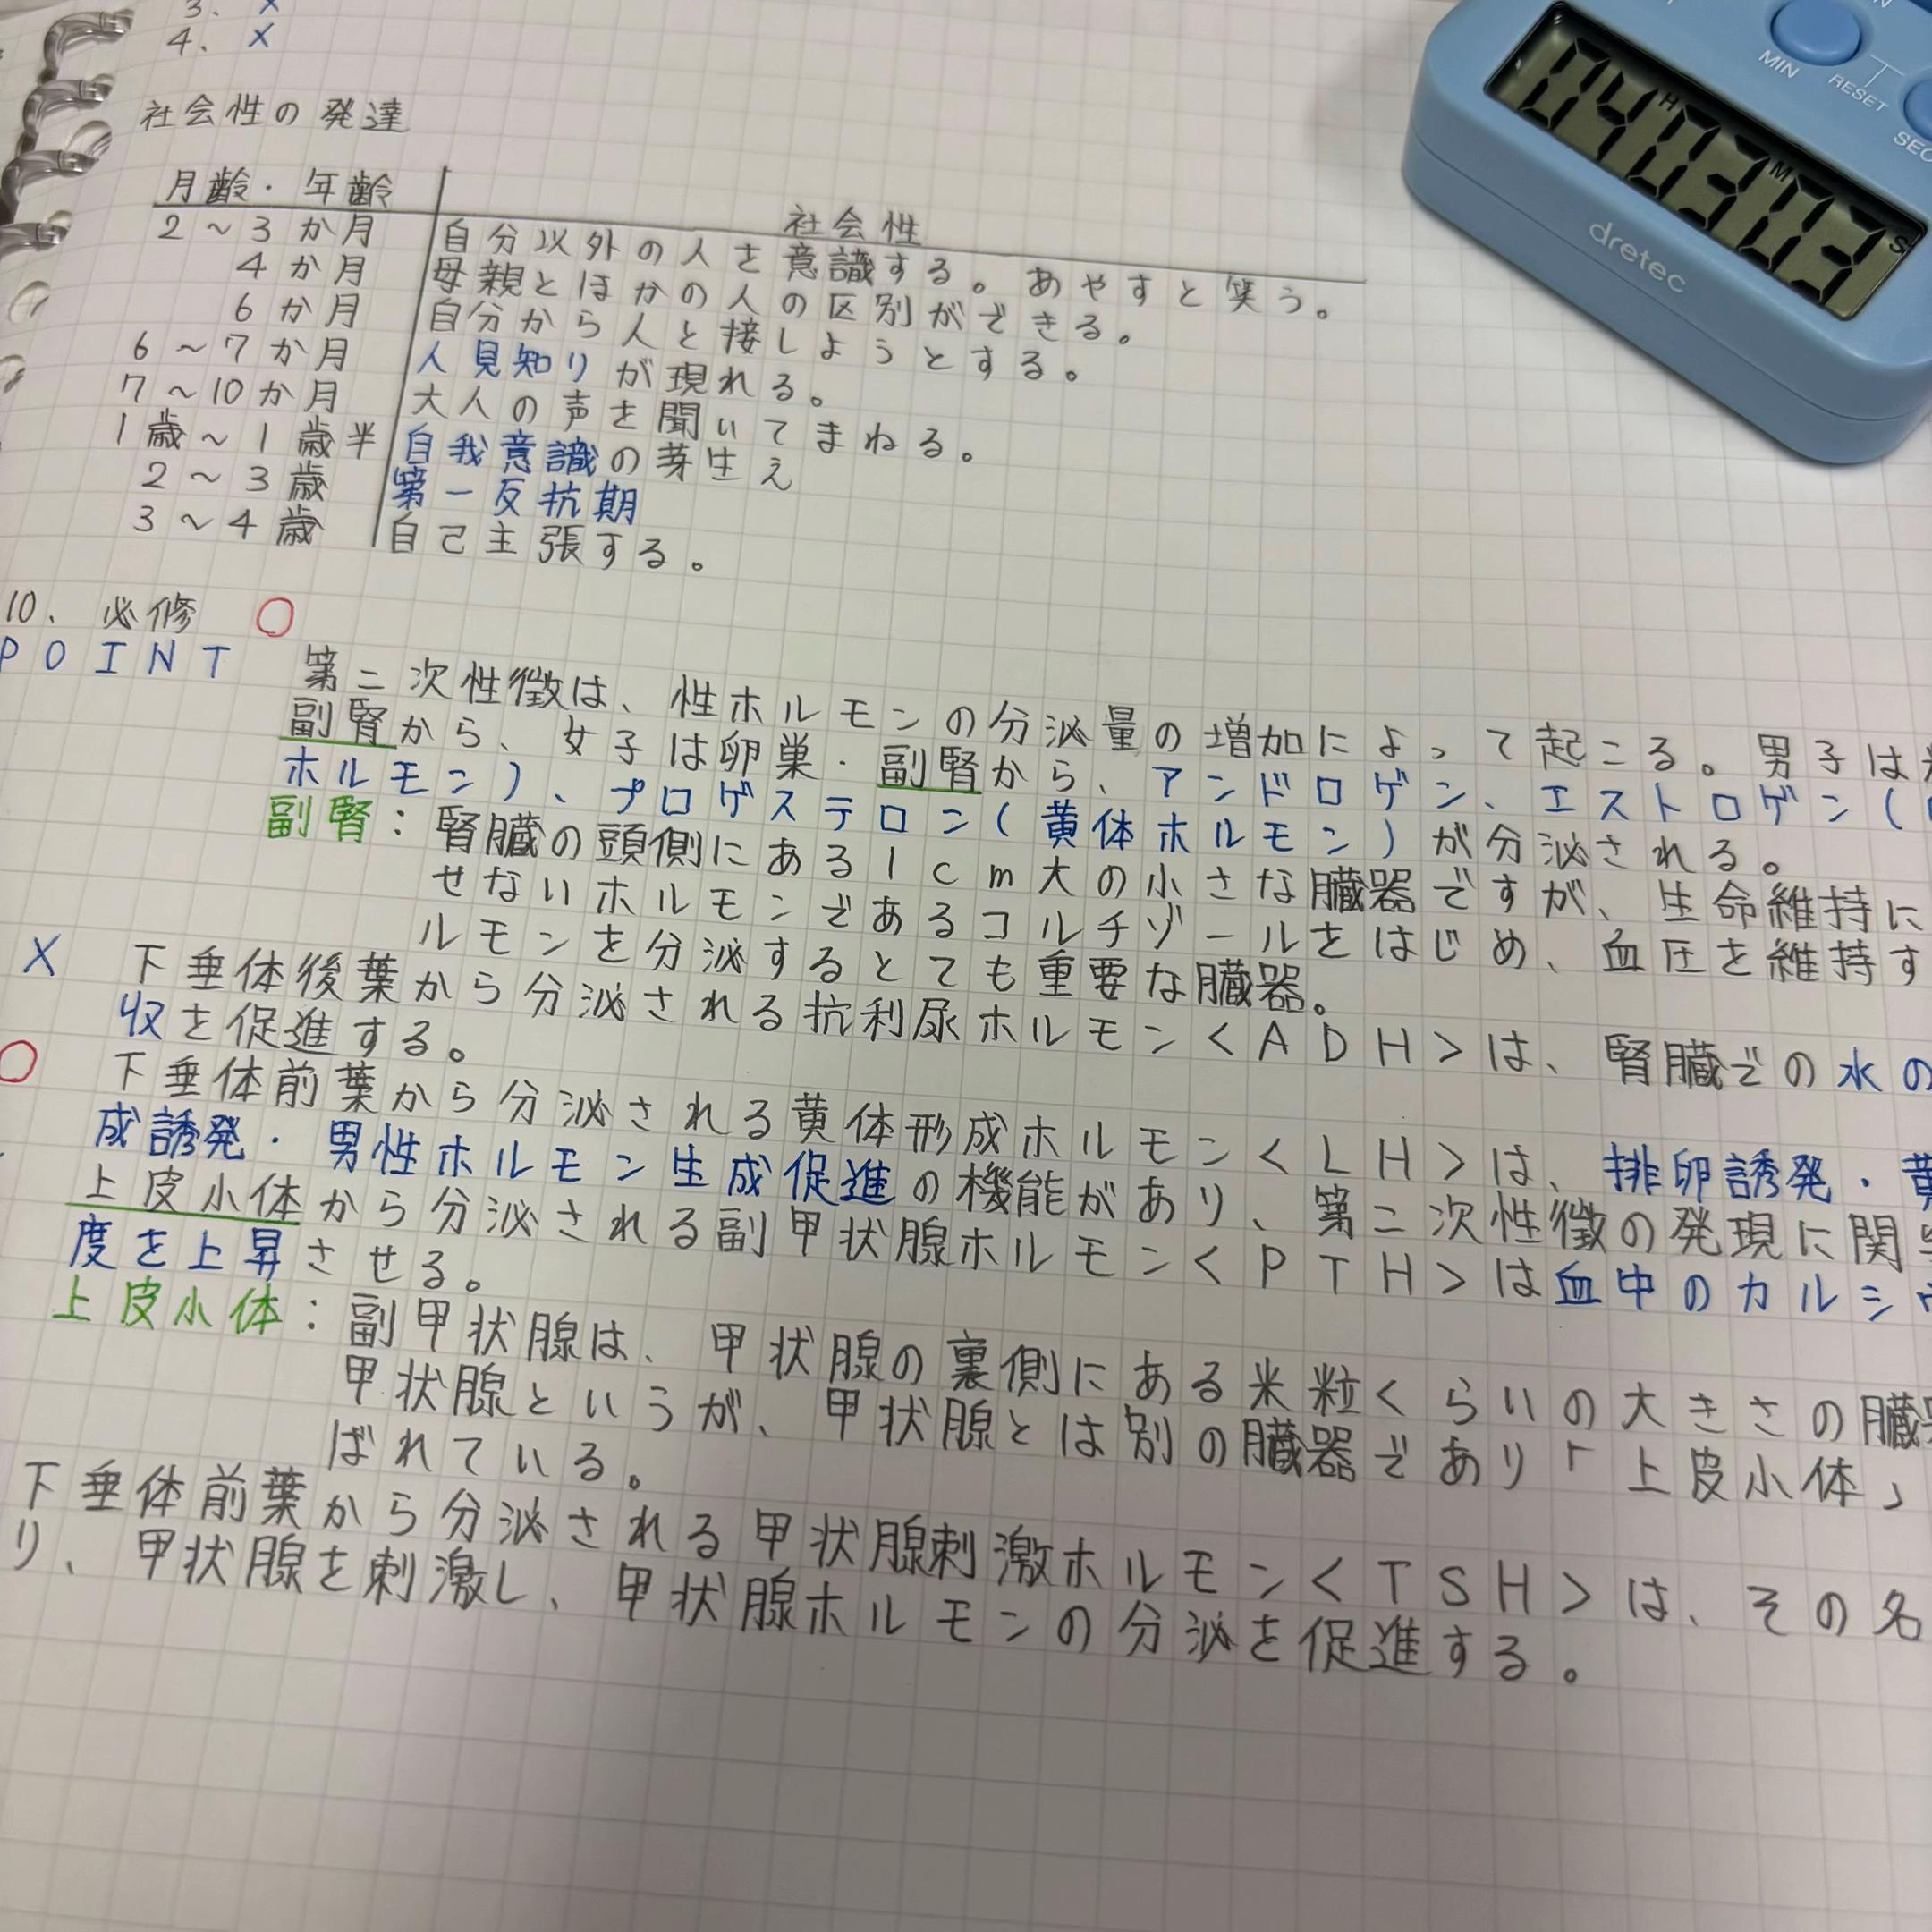 3. ×
4. ×
社会性の発達
月齢・年齢 社会性
2～3か月 自分以外の人を意識する。あやすと笑う。
4か月 母親とほかの人の区別ができる。
6か月 自分から人と接しようとする。
6～7か月 人見知りが現れる。
7～10か月 大人の声を聞いてまねる。
1歳～1歳半 自我意識の芽生え
2～3歳 第一反抗期
3～4歳 自己主張する。
10. 必修 ○
POINT 第二次性徴は、性ホルモンの分泌量の増加によって起こる。男子は
副腎から、女子は卵巣・副腎から、アンドロゲン、エストロゲン(
ホルモン)、プロゲステロン(黄体ホルモン)が分泌される。
副腎：腎臓の頭側にある1cm大の小さな臓器ですが、生命維持に
せないホルモンであるコルチゾールをはじめ、血圧を維持す
ルモンを分泌するとても重要な臓器。
× 下垂体後葉から分泌される抗利尿ホルモン<ADH>は、腎臓での水の
収を促進する。
○ 下垂体前葉から分泌される黄体形成ホルモン<LH>は、排卵誘発・黄
成誘発・男性ホルモン生成促進の機能があり、第二次性徴の発現に関
上皮小体から分泌される副甲状腺ホルモン<PTH>は血中のカルシ
度を上昇させる。
上皮小体：副甲状腺は、甲状腺の裏側にある米粒くらいの大きさの臓器
甲状腺というが、甲状腺とは別の臓器であり「上皮小体」
ばれている。
下垂体前葉から分泌される甲状腺刺激ホルモン<TSH>は、その名
り、甲状腺を刺激し、甲状腺ホルモンの分泌を促進する。
MIN
RESET
SEC
04H03M03S
dretec